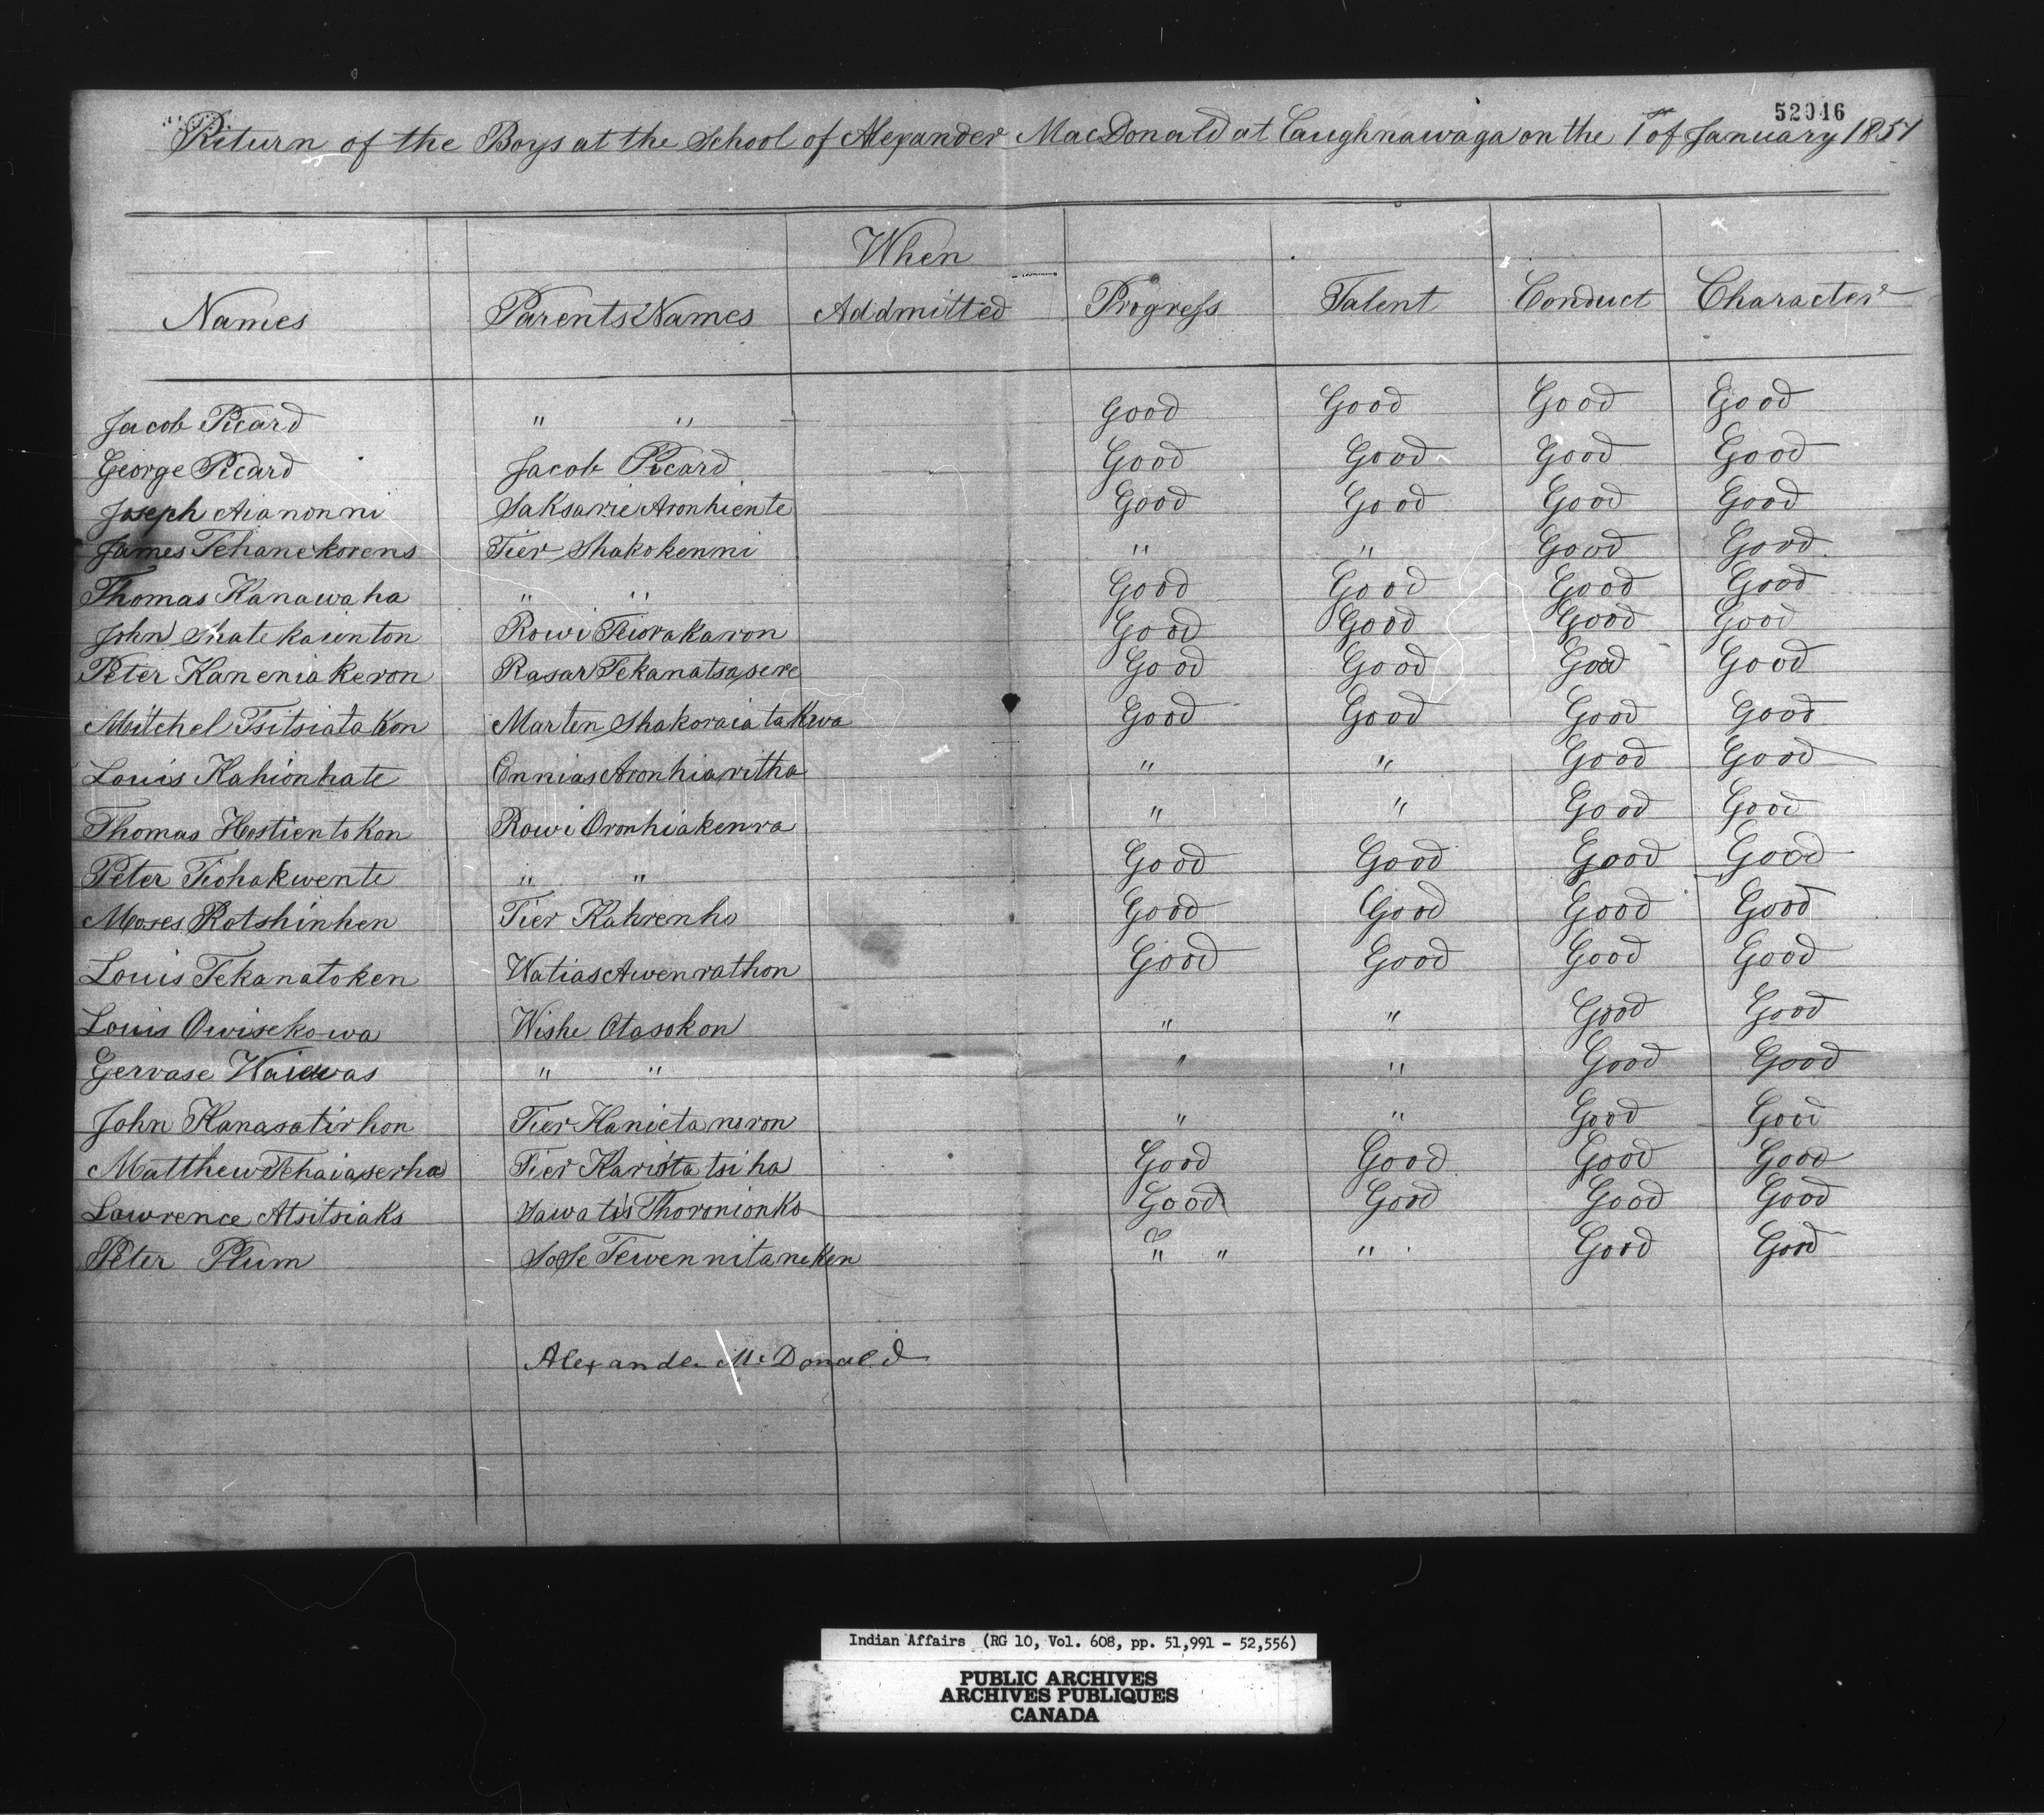 52046
Riturn of the Boys at the School of Alexander MacDonald at Caughnawaga on the 1st of January 1851
When
Names Parents Names Addmitted Progress Talent Conduct Character
Jacob Picard " " Good Good Good Good
George Picard Jacob Picard Good Good Good Good
Joseph Aianonni Saksarie Aronhiente Good Good Good Good
James Tehanekorens Tier Shakokenni " " Good Good
Thomas Kanawaha " " Good Good Good Good
John Shatekaienton Rowi Teiorakaron Good Good Good Good
Peter Kaneniakeron Rasar Tekanatsasere Good Good Good Good
Mitchel Tsitsiatakon Marten Shakoraiatakwa Good Good Good Good
Louis Kahionhate Ennias Aronhiaritha " " Good Good
Thomas Hostientokon Rowi Oronhiakenra " " Good Good
Peter Tiohakwente " " Good Good Good Good
Moses Rotshinhen Tier Kahrenho Good Good Good Good
Louis Tekanatoken Watias Awenrathon Good Good Good Good
Louis Owisekowa Wishe Otasokon " " Good Good
Gervase Waiewas " " " " Good Good
John Kanasatirhon Tier Kanietaneron " " Good Good
Matthew Tehaiaserha Tier Karistatsiha Good Good Good Good
Lawrence Atsitsiaks Sawatis Thoronionko Good Good Good Good
Peter Plum Sose Tewennitaneken " " " Good Good
Alexander McDonald
Indian Affairs (RG 10, Vol. 608, pp. 51,991 - 52,556)
PUBLIC ARCHIVES
ARCHIVES PUBLIQUES
CANADA